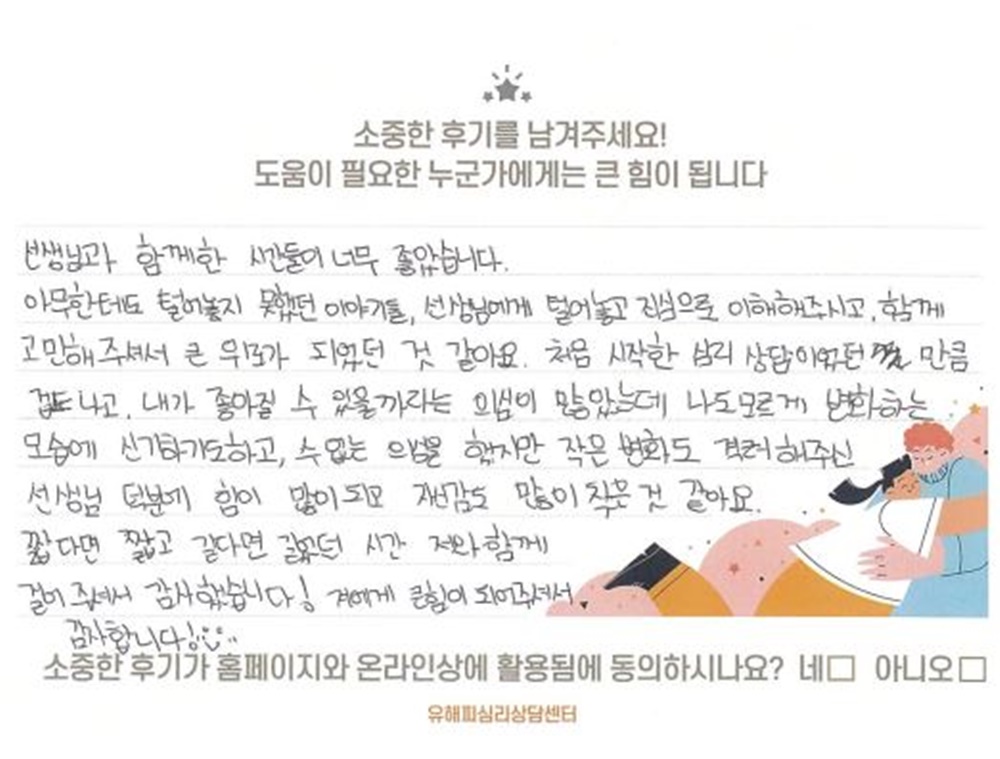 소중한 후기를 남겨주세요!
도움이 필요한 누군가에게는 큰 힘이 됩니다
선생님과 함께한 시간들이 너무 좋았습니다.
아무한테도 털어놓지 못했던 이야기들, 선생님에게 털어놓고 진심으로 이해해주시고, 함께
고민해주셔서 큰 위로가 되었던 것 같아요. 처음 시작한 심리 상담이었던 만큼
겁도 나고, 내가 좋아질 수 있을까라는 의심이 많았는데 나도모르게 변화하는
모습에 신기하기도하고, 수없는 의심을 했지만 작은 변화도 격려해주신
선생님 덕분에 힘이 많이 되고 많이 찾은 것 같아요.
짧다면 짧고 길다면 길었던 시간 저와 함께
걸어 주셔서 감사했습니다! 저에게 큰힘이 되어주셔서
감사합니다!
소중한 후기가 홈페이지와 온라인상에 활용됨에 동의하시나요? 네 아니오
유해피심리상담센터